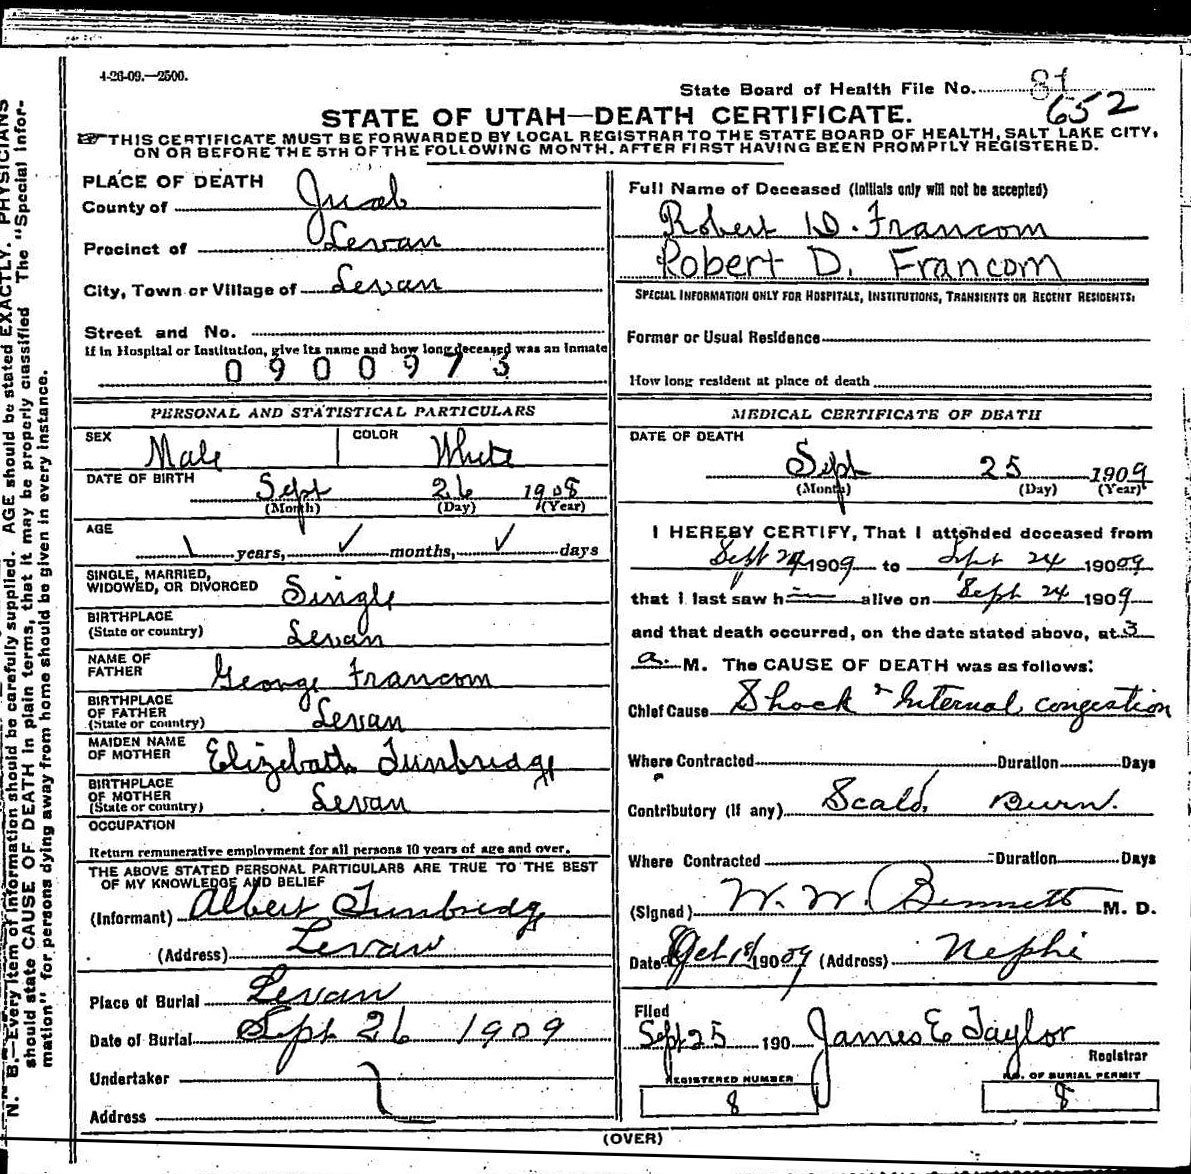 4-26-09.—2500.
State Board of Health File No. 81
652
STATE OF UTAH—DEATH CERTIFICATE.
THIS CERTIFICATE MUST BE FORWARDED BY LOCAL REGISTRAR TO THE STATE BOARD OF HEALTH, SALT LAKE CITY,
ON OR BEFORE THE 5TH OF THE FOLLOWING MONTH. AFTER FIRST HAVING BEEN PROMPTLY REGISTERED.
PLACE OF DEATH
County of Juab
Precinct of Levan
City, Town or Village of Levan
Street and No.
If in Hospital or Institution, give its name and how long deceased was an inmate
0900973
Full Name of Deceased (Initials only will not be accepted)
Robert D. Francom
Robert D. Francom
SPECIAL INFORMATION ONLY FOR HOSPITALS, INSTITUTIONS, TRANSIENTS OR RECENT RESIDENTS:
Former or Usual Residence
How long resident at place of death
PERSONAL AND STATISTICAL PARTICULARS
SEX Male COLOR White
DATE OF BIRTH Sept 26 1908
(Month) (Day) (Year)
AGE
1 years, ✓ months, ✓ days
SINGLE, MARRIED,
WIDOWED, OR DIVORCED Single
BIRTHPLACE
(State or country) Levan
NAME OF
FATHER George Francom
BIRTHPLACE
OF FATHER
(State or country) Levan
MAIDEN NAME
OF MOTHER Elizebath Tunbridge
BIRTHPLACE
OF MOTHER
(State or country) Levan
OCCUPATION
Return remunerative employment for all persons 10 years of age and over.
THE ABOVE STATED PERSONAL PARTICULARS ARE TRUE TO THE BEST
OF MY KNOWLEDGE AND BELIEF
(Informant) Albert Tunbridg
(Address) Levan
Place of Burial Levan
Date of Burial Sept 26 1909
Undertaker
Address
MEDICAL CERTIFICATE OF DEATH
DATE OF DEATH
Sept 25 1909
(Month) (Day) (Year)
I HEREBY CERTIFY, That I attended deceased from
Sept 24 1909 to Sept 24 19009
that I last saw h alive on Sept 24 1909
and that death occurred, on the date stated above, at 3
a. M. The CAUSE OF DEATH was as follows:
Chief Cause Shock & Internal congestion
Where Contracted Duration Days
Contributory (if any) Scald, Burn.
Where Contracted Duration Days
(Signed) W. W. Bennett M. D.
Date Oct 18 19009 (Address) Nephi
Filed
Sept 25 190 James E Taylor
Registrar
REGISTERED NUMBER
8
NO. OF BURIAL PERMIT
8
(OVER)
N. B.—Every item of information should be carefully supplied. AGE should be stated EXACTLY. PHYSICIANS
should state CAUSE OF DEATH in plain terms, that it may be properly classified The "Special Infor-
mation" for persons dying away from home should be given in every instance.